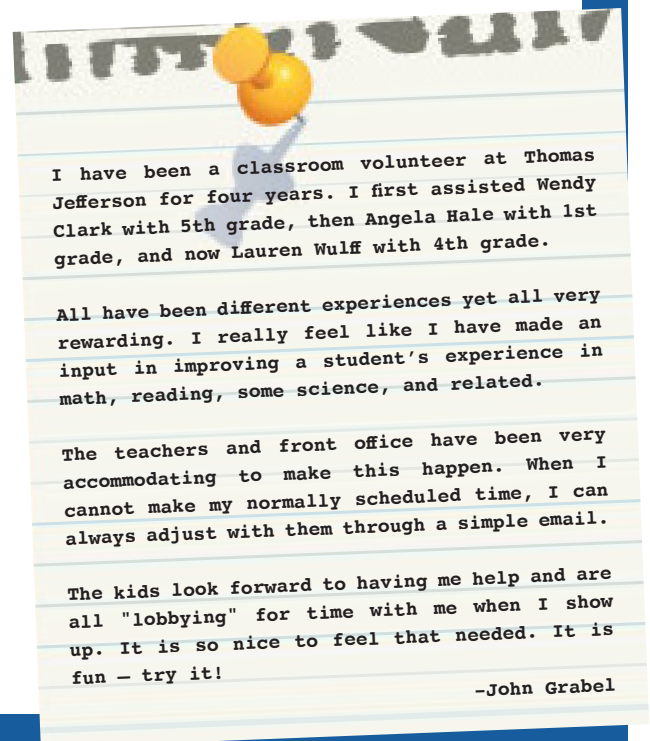 I have been a classroom volunteer at Thomas
Jefferson for four years. I first assisted Wendy
Clark with 5th grade, then Angela Hale with 1st
grade, and now Lauren Wulff with 4th grade.
All have been different experiences yet all very
rewarding. I really feel like I have made an
input in improving a student’s experience in
math, reading, some science, and related.
The teachers and front office have been very
accommodating to make this happen. When I
cannot make my normally scheduled time, I can
always adjust with them through a simple email.
The kids look forward to having me help and are
all "lobbying" for time with me when I show
up. It is so nice to feel that needed. It is
fun — try it!
–John Grabel